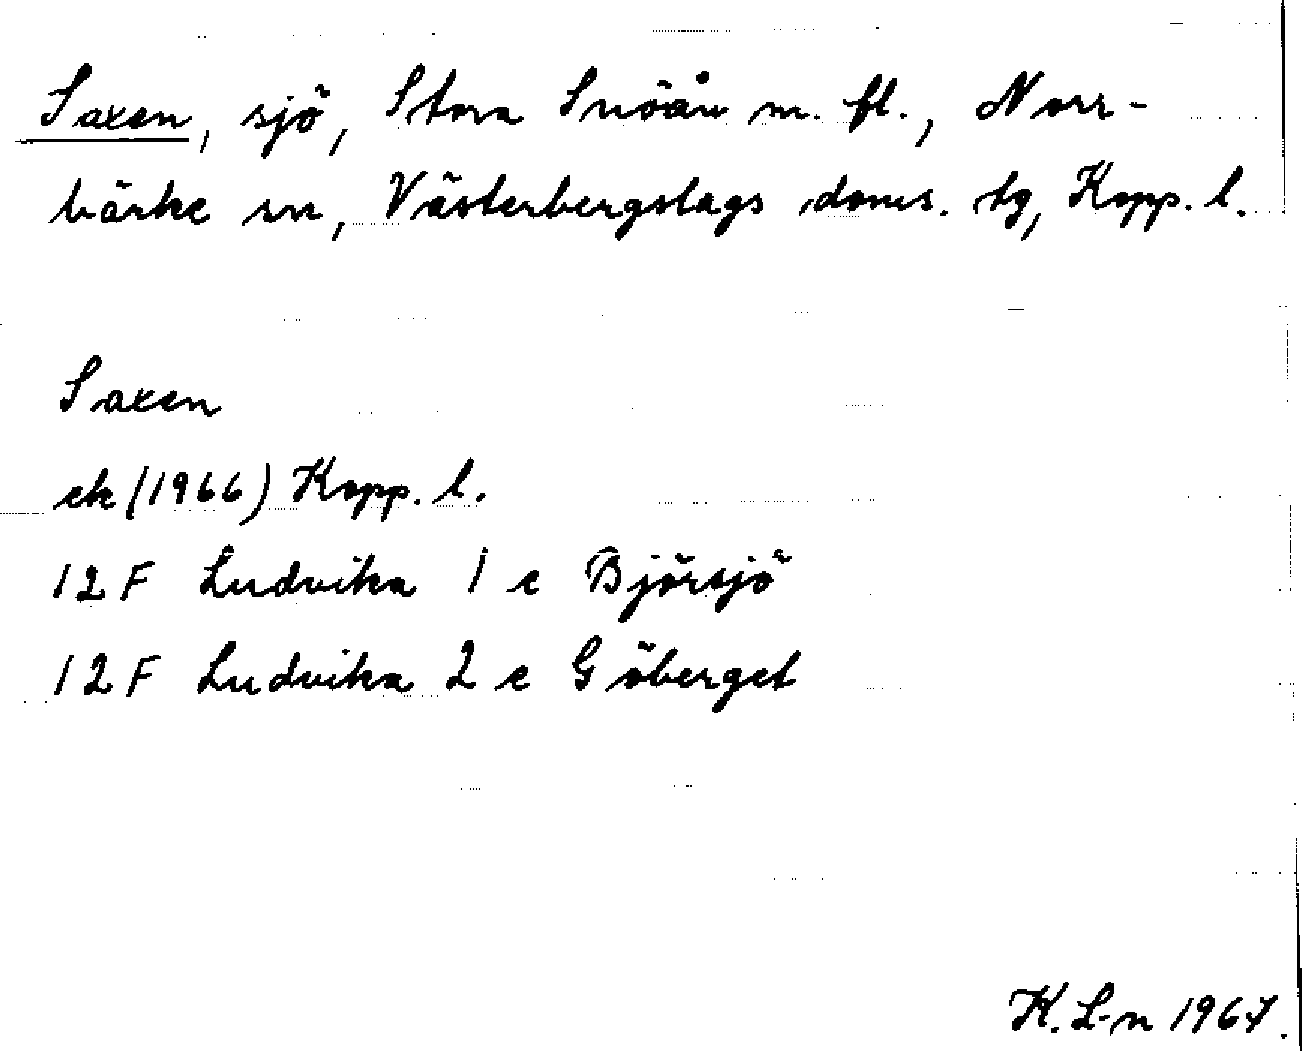 Saxen, sjö, Stora Snöån m. fl., Norr-
bärke sn, Västerbergslags doms. tg, Kopp. l.
Saxen
ek (1966) Kopp. l.
12 F Ludvika 1 e Björsjö
12 F Ludvika 2 e Göberget
K. L-n 1967.